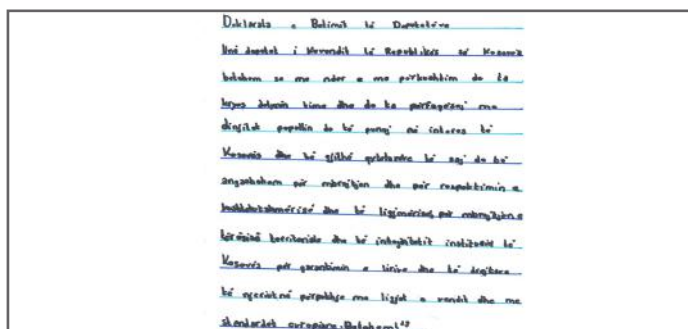 Deklarata e Betimit të Deputetëve
Unë deputet i Kuvendit të Republikës së Kosovës
betohem se me nder e me përkushtim do ta
kryej detyrën time dhe do ta përfaqësoj me
dinjitet popullin do të punoj në interes të
Kosovës dhe të gjithë qytetarëve të saj do të
angazhohem për mbrojtjen dhe për respektimin e
kushtetutshmërisë dhe të ligjshmërisë për mbrojtjen e
tërësisë territoriale dhe të integritetit institucional të
Kosovës për garantimin e lirive dhe të drejtave
të njeriut në përputhje me ligjet e vendit dhe me
standardet evropiane. Betohem!"